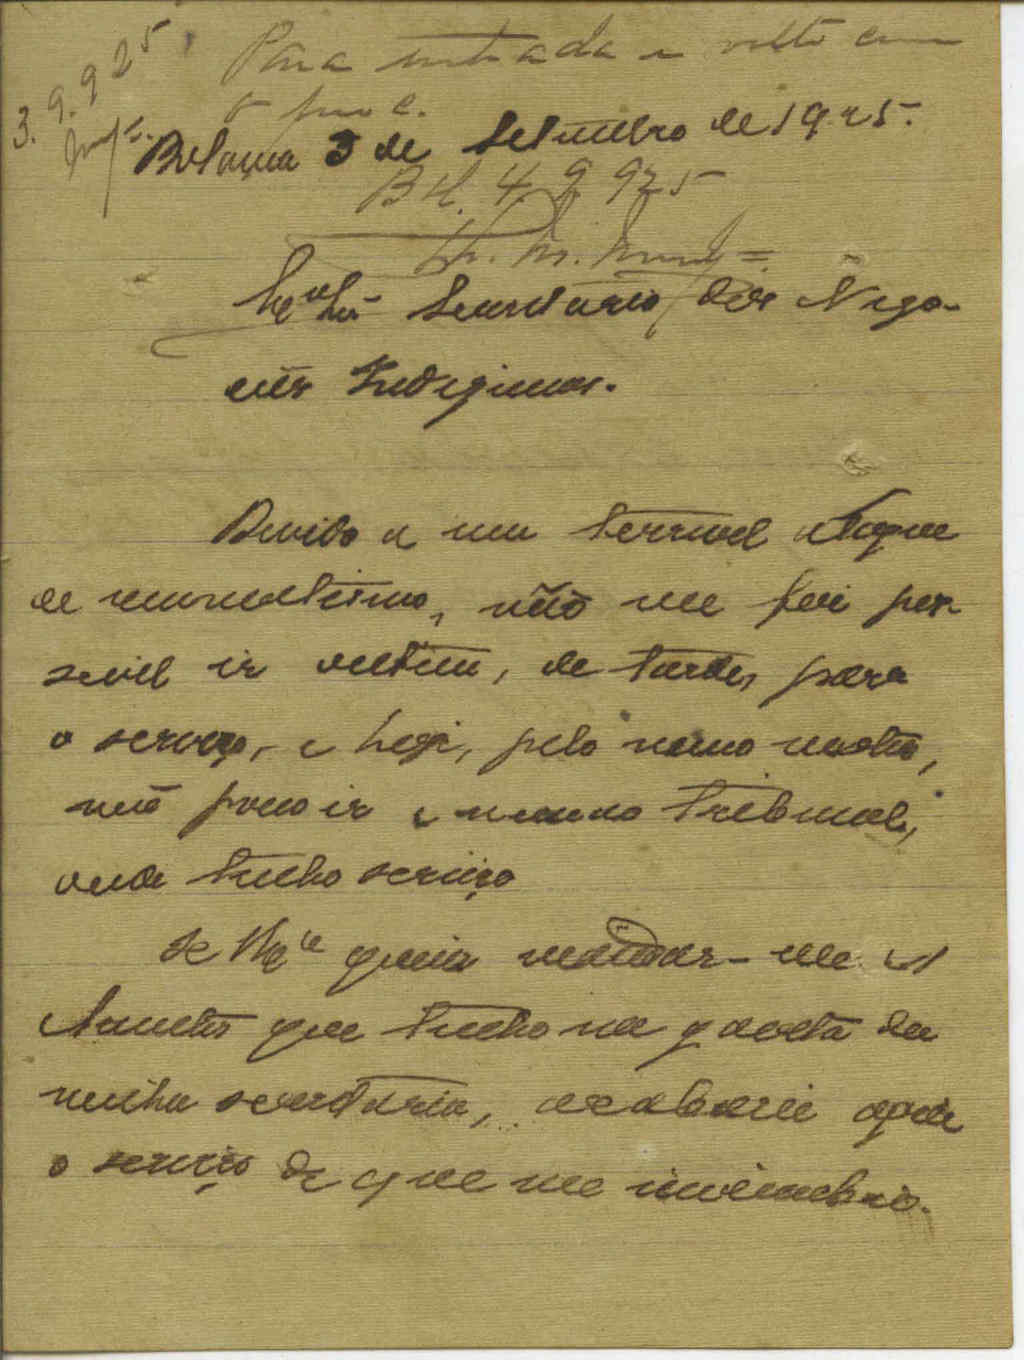 3.9.925
Para entrada e volte com
o proc.
Bolama 3 de Setembro de 1925.
4 9 925
Secretario dos Nego-
cios Indiginas.
Devido a um terrivel ataque
de reumatismo, não me foi pos-
sivel ir ontem, de tarde, para
o serviço, e hoje, pelo mesmo motivo,
não posso ir e mesmo Tribunal,
onde tenho serviço
Se queria mandar-me
que tenho na gaveta da
minha secretaria, acabarei aqui
o serviço de que me incumbiu.